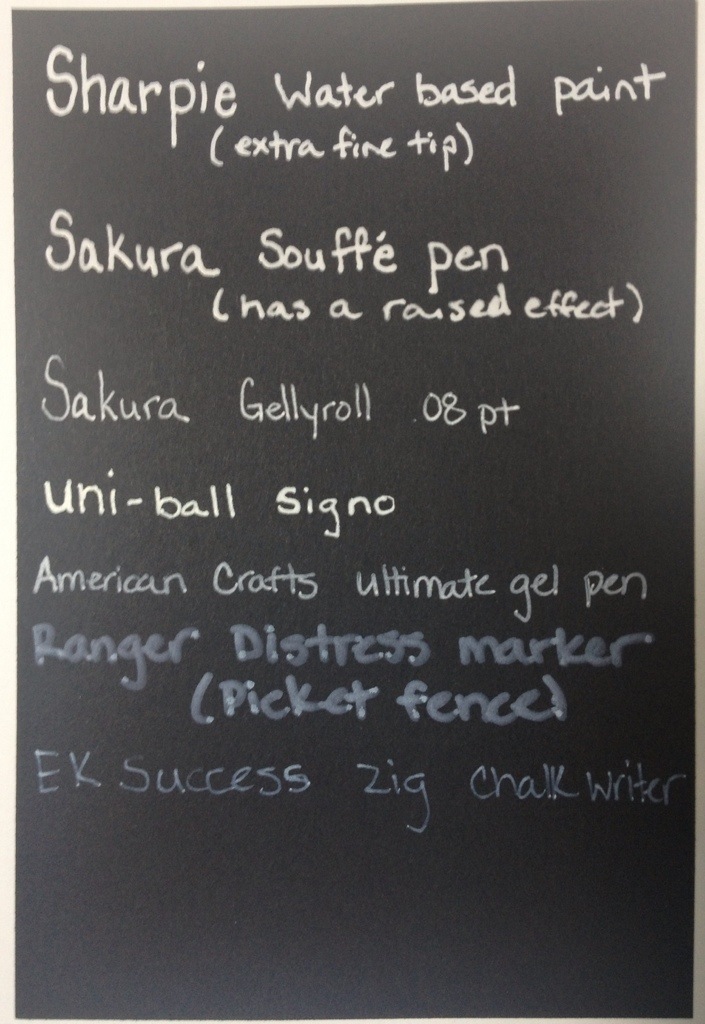 Sharpie Water based paint
(extra fine tip)
Sakura Souffé pen
(has a raised effect)
Sakura Gellyroll .08 pt
uni-ball signo
American Crafts ultimate gel pen
Ranger Distress marker
(Picket fence)
EK Success Zig Chalk writer